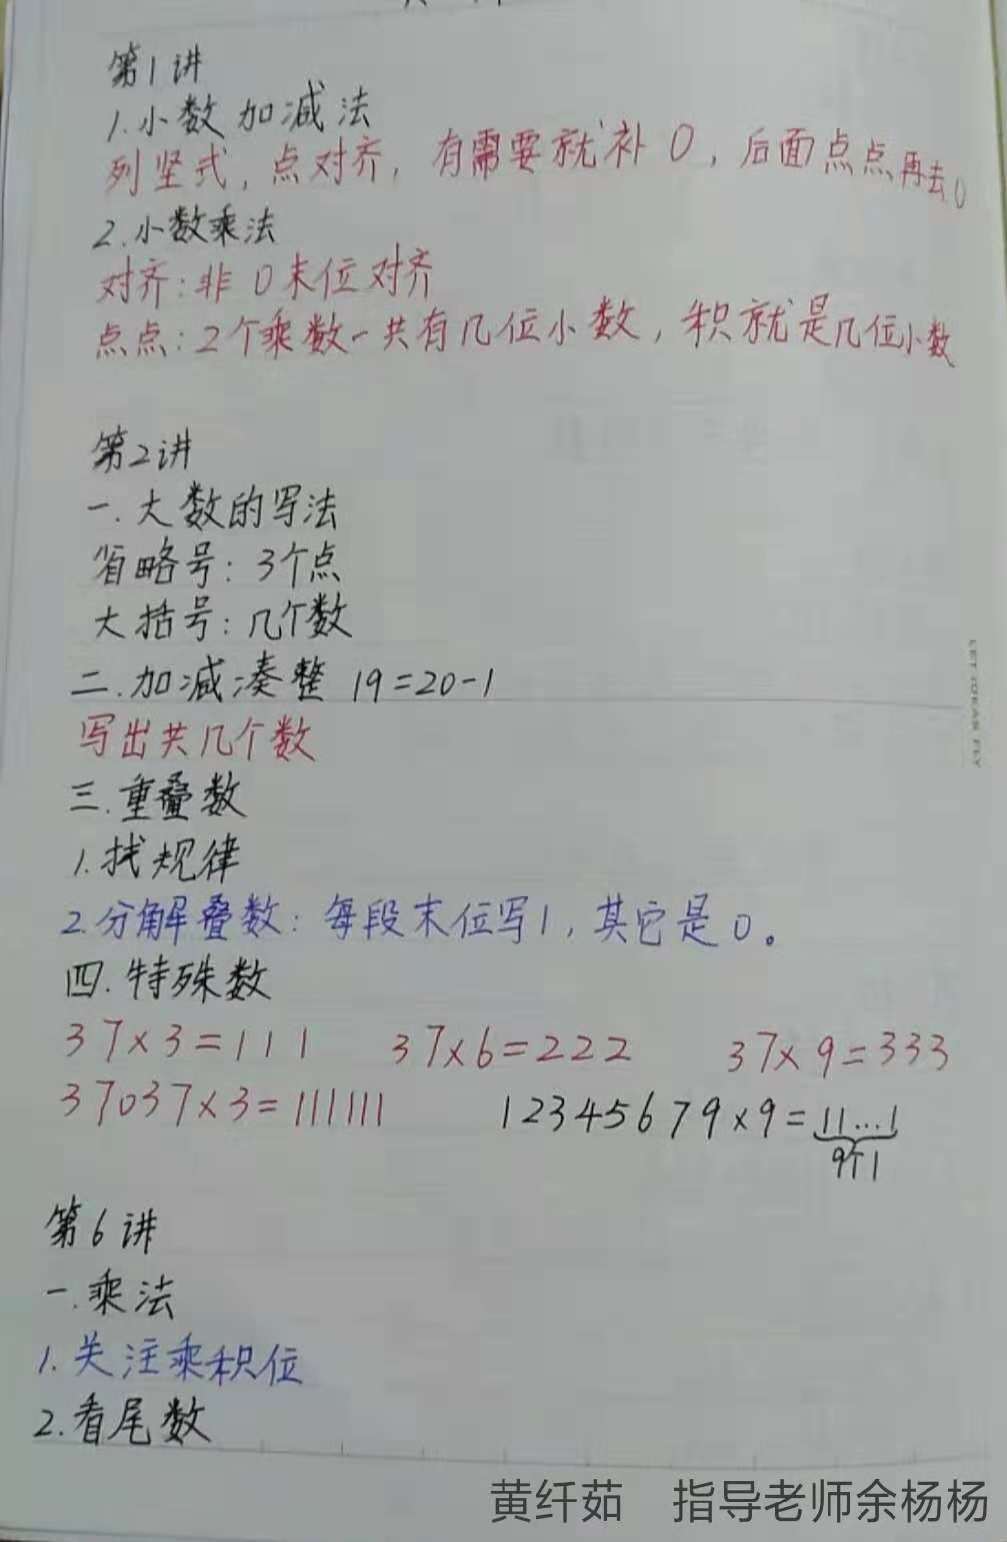 第1讲
1.小数加减法
列坚式,点对齐,有需要就补0,后面点点再去0
2.小数乘法
对齐:非0末位对齐
点点:2个乘数一共有几位小数,积就是几位小数
第2讲
一.大数的写法
省略号:3个点
大括号:几个数
二.加减凑整 19=20-1
写出共几个数
三.重叠数
1.找规律
2.分解叠数:每段末位写1,其它是0。
四.特殊数
37×3=111 37×6=222 37×9=333
37037×3=111111 12345679×9=11...1
9个1
第6讲
一.乘法
1.关注乘积位
2.看尾数
黄纤茹 指导老师余杨杨